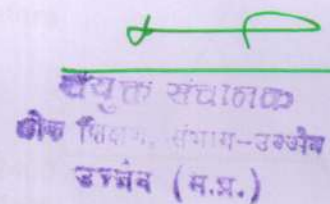 संयुक्त संचालक
लोक शिक्षण, संभाग-उज्जैन
उज्जैन (म.प्र.)